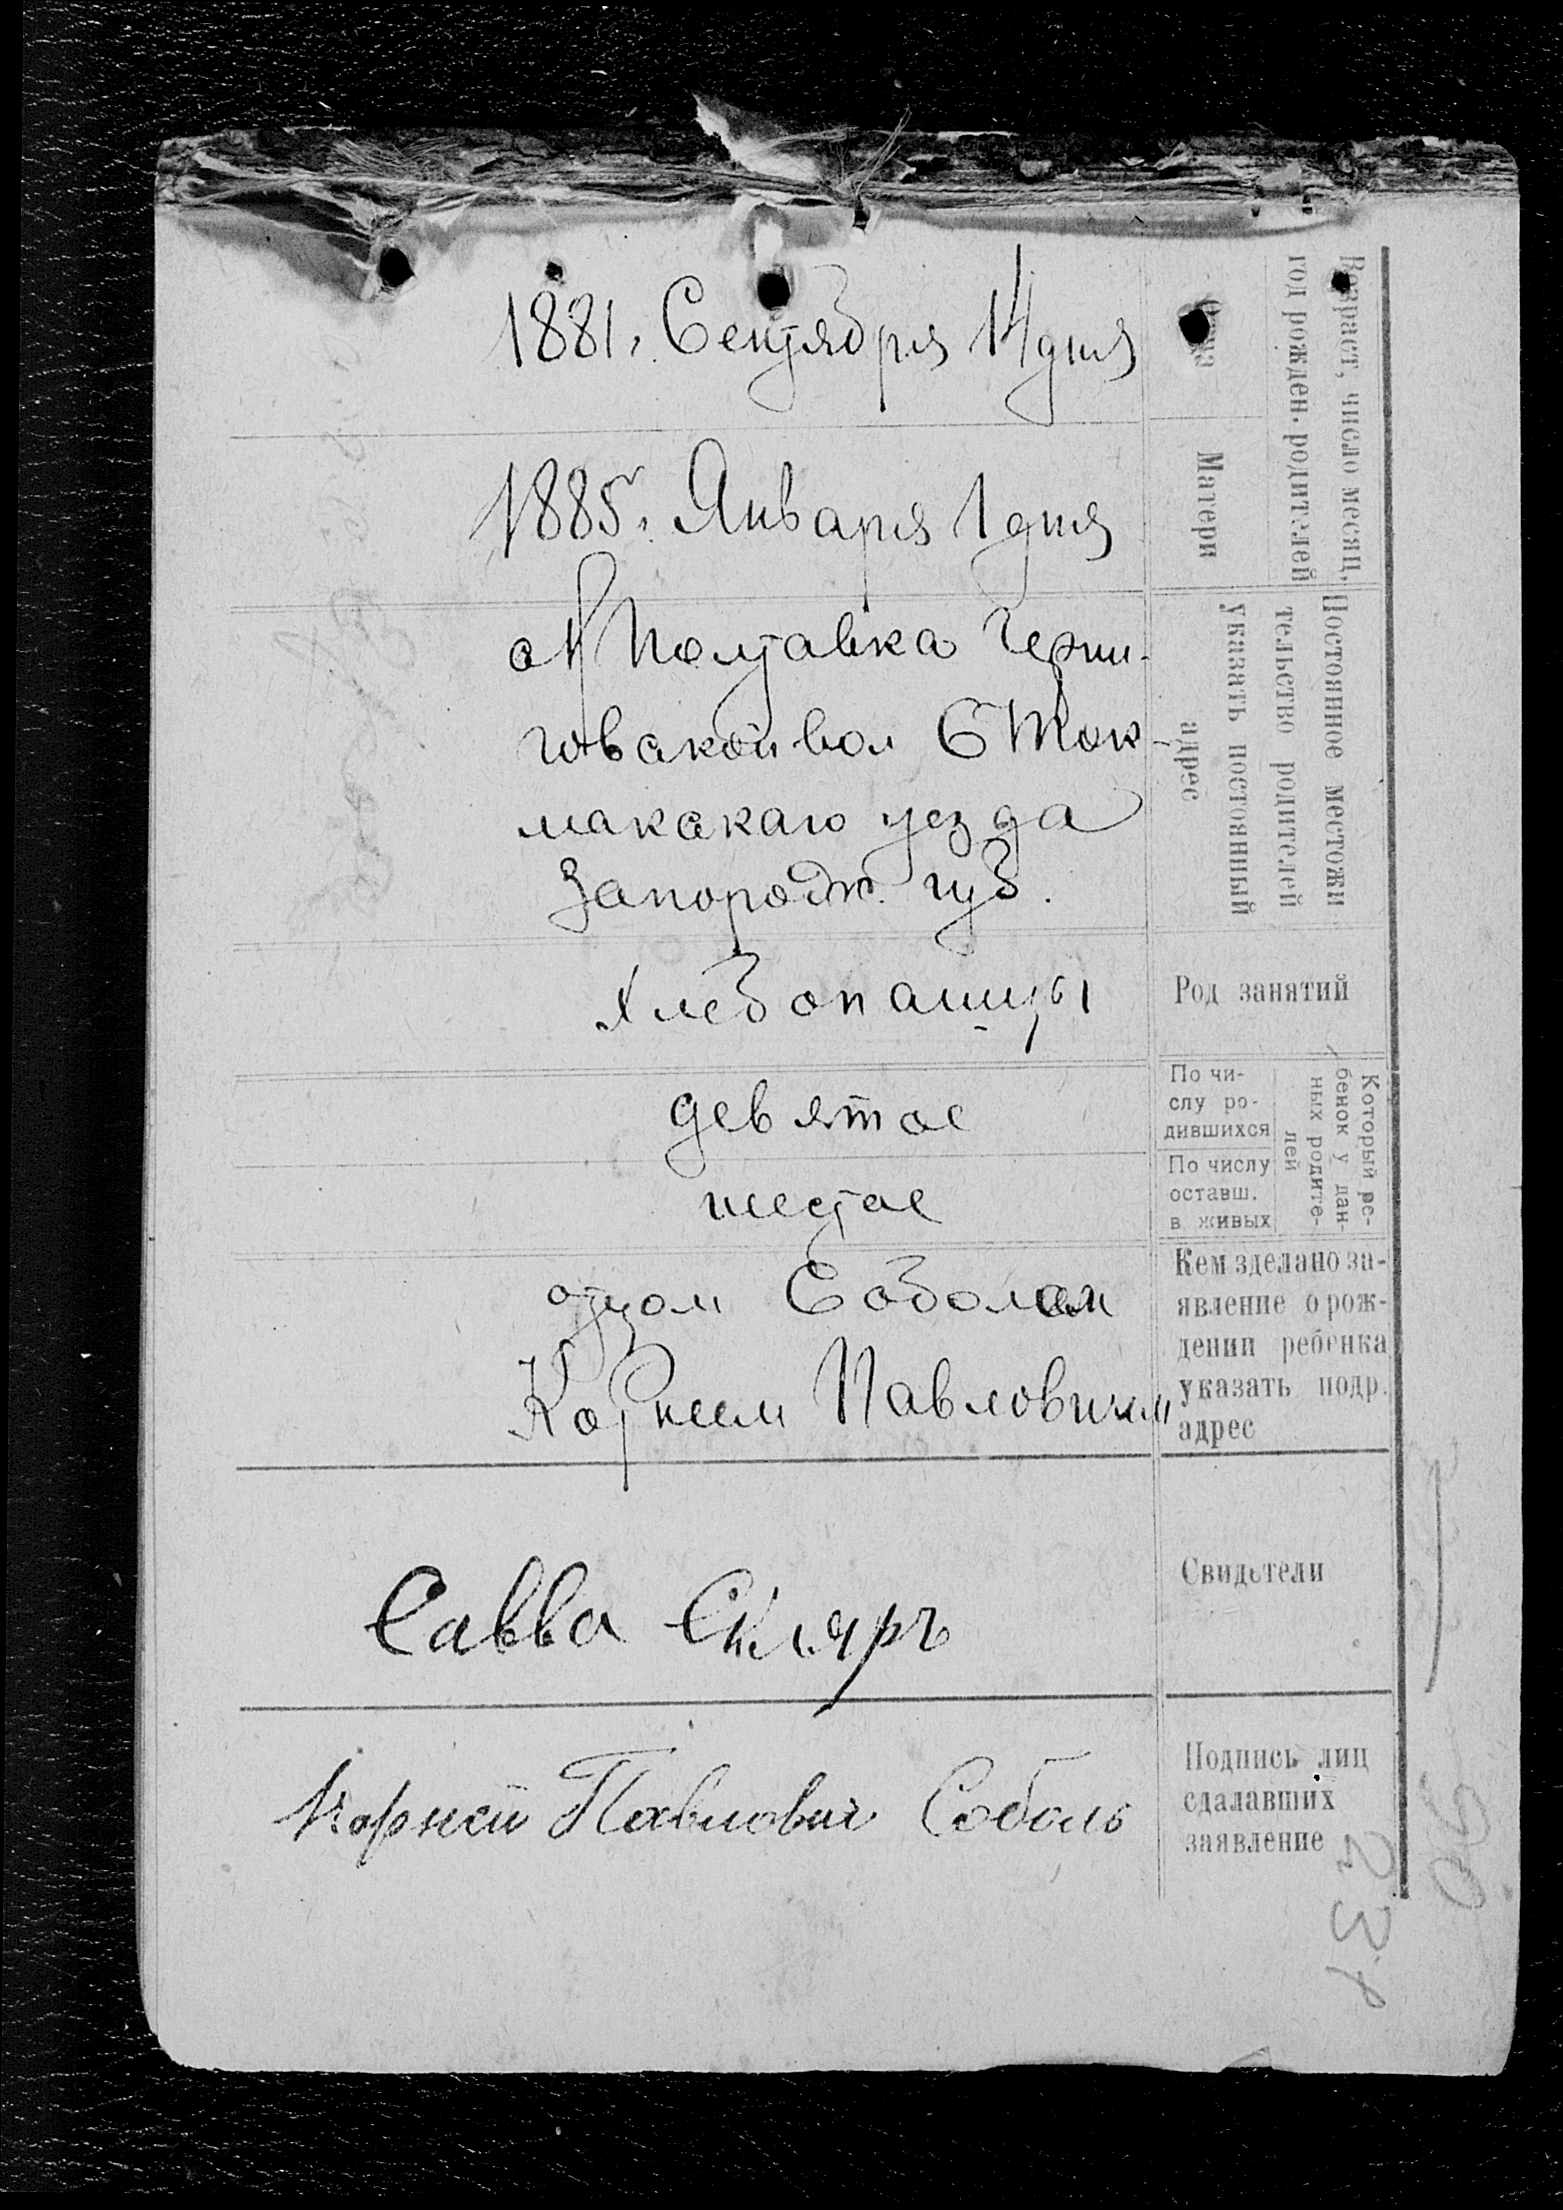 Возраст, число месяц,
год рожден. родителей
1881, Сентября 14 дня
Матери
1885г. Января 1 дня
Постоянное местожи
тельство родителей
указать постоянный
адрес
Полтавка Черни-
говской вол Б Ток-
макскаго уезда
Запорож. губ.
Род занятий
Хлебопашцы
Который ре-
бенок у дан-
ных родите-
лей
По чи-
слу ро-
дившихся
девятое
По числу
оставш.
в живых
шестое
Кем зделано за-
явление о рож-
дении ребенка
указать подр.
адрес
отцом Соболем
Корнеем Павловичем
Свидетели
Савва Скляръ
Подпись лиц
сдалавших
заявление
Корней Павлович Соболь